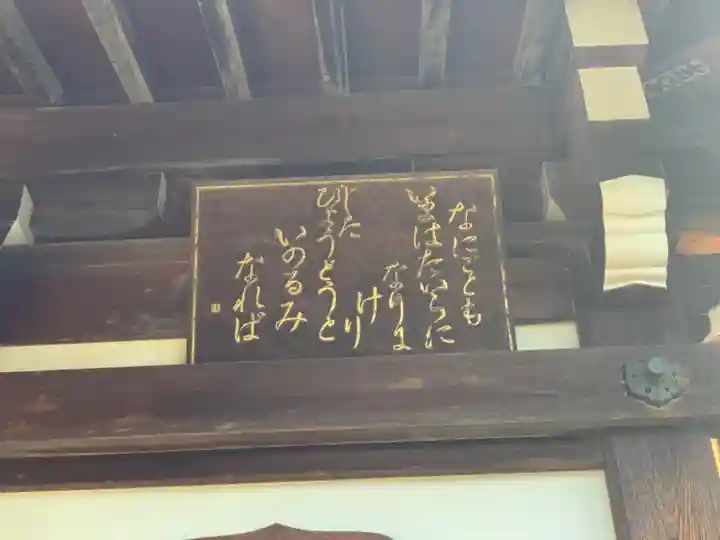 なにごとも
いまはたいらに
なりに
けり
した
びょうどうと
いのるみ
なれば